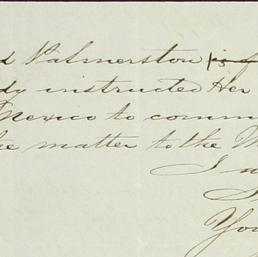 Palmerston is
instructed Her
Mexico to comm
matter to the M
I
You